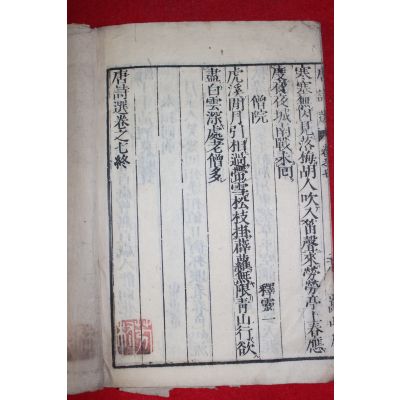 寒塞無因見落梅胡人吹入笛聲來勞勞亭上春應
度夜夜城南戰未回
僧院 釋靈一
虎溪閒月引相過帶雪松枝掛薜蘿無限青山行欲
盡白雲深處老僧多
唐詩選卷之七終